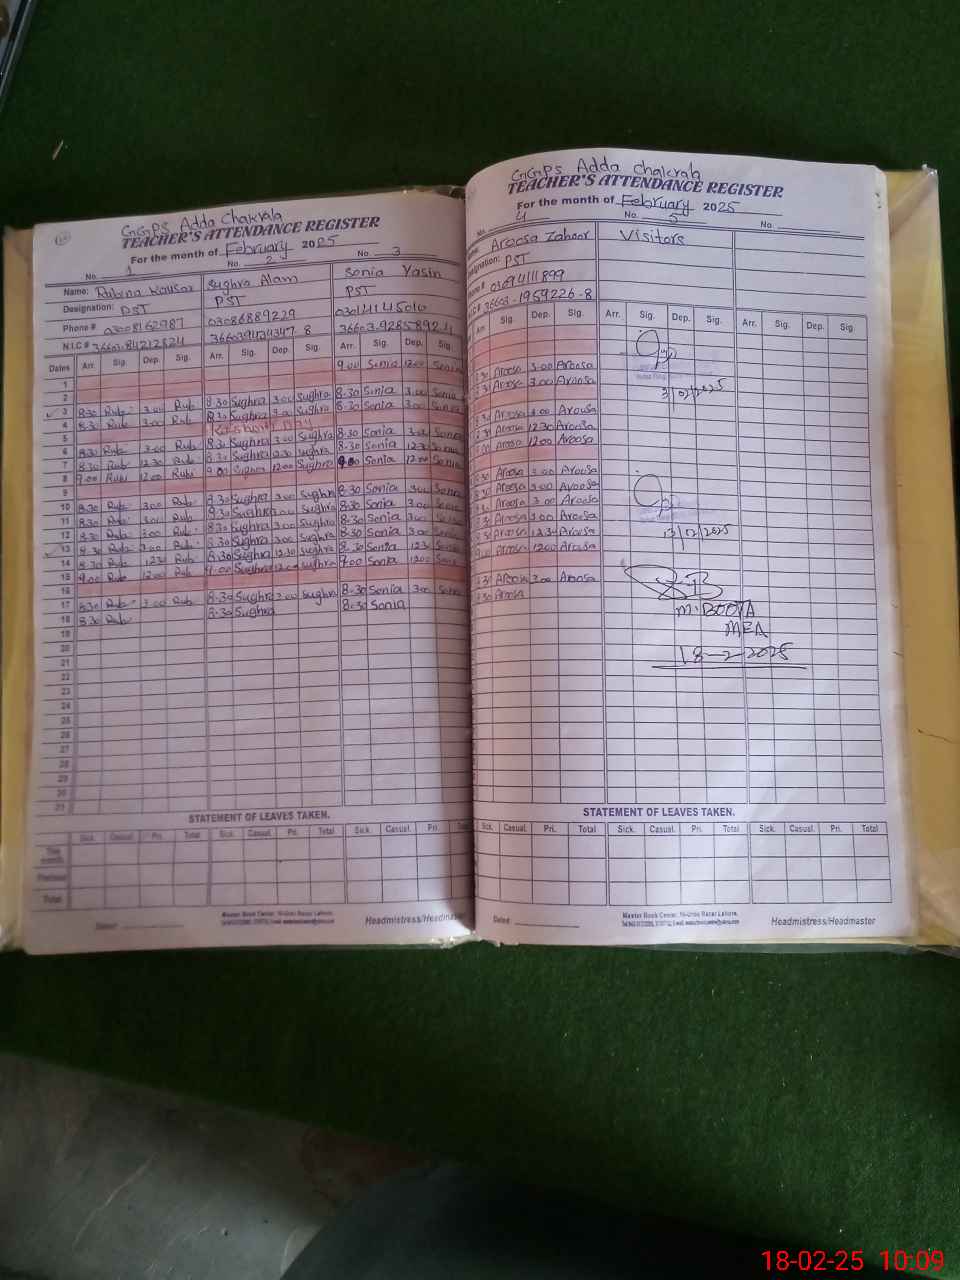 GGPS Adda Chakrala
TEACHER'S ATTENDANCE REGISTER
For the month of February 2025
No. 1 No. 2 No. 3
Name: Rubina Kousar Sughra Alam Sonia Yasin
Designation: PST PST PST
Phone # 03008162987 03086889229
N.I.C #
Dates Arr. Sig. Dep. Sig. Arr. Sig. Dep. Sig. Arr. Sig. Dep. Sig.
1 9.00 Sonia 12.00 Sonia
2
3 8.30 Rub 3.00 Rub 8.30 Sughra 3.00 Sughra 8-30 Sonia 3.00 Sonia
4 8.30 Rub 3.00 Rub 8.30 Sughra 3.00 Sughra 8-30 Sonia 3.00 Sonia
5 Kashmir Day
6 8.30 Rub 3.00 Rub 8.30 Sughra 3.00 Sughra 8-30 Sonia 3.00 Sonia
7 8.30 Rub 12.30 Rub 8.30 Sughra 12.30 Sughra 8-30 Sonia 12.30 Sonia
8 9.00 Rub 12.00 Rub 9.00 Sughra 12.00 Sughra 9.00 Sonia 12.00 Sonia
9
10 8.30 Rub 3.00 Rub 8.30 Sughra 3.00 Sughra 8-30 Sonia 3.00 Sonia
11 8.30 Rub 3.00 Rub 8.30 Sughra 3.00 Sughra 8-30 Sonia 3.00 Sonia
12 8.30 Rub 3.00 Rub 8.30 Sughra 3.00 Sughra 8-30 Sonia 3.00 Sonia
13 8.30 Rub 3.00 Rub 8.30 Sughra 3.00 Sughra 8-30 Sonia 3.00 Sonia
14 8.30 Rub 12.30 Rub 8.30 Sughra 12.30 Sughra 8-30 Sonia 12.30 Sonia
15 9.00 Rub 12.00 Rub 9.00 Sughra 12.00 Sughra 9.00 Sonia 12.00 Sonia
16
17 8.30 Rub 3.00 Rub 8.30 Sughra 3.00 Sughra 8-30 Sonia 3.00 Sonia
18 8.30 Rub 8.30 Sughra 8-30 Sonia
19
20
21
22
23
24
25
26
27
28
29
30
31
STATEMENT OF LEAVES TAKEN.
Sick. Casual. Pri. Total Sick. Casual. Pri. Total Sick. Casual. Pri. Total
This month
Previous
Total
Dated
Master Book Center, 16-Urdu Bazar Lahore.
Headmistress/Headmaster
GGPS Adda Chakrah
TEACHER'S ATTENDANCE REGISTER
For the month of February 2025
No. 4 No. 5 No.
Name: Aroosa Zahoor Visitors
Designation: PST
Phone # 03694111899
N.I.C # 36603-1959226-8
Arr. Sig. Dep. Sig. Arr. Sig. Dep. Sig. Arr. Sig. Dep. Sig.
8.30 Aroosa 3.00 Aroosa
8.30 Aroosa 3.00 Aroosa
3/02/2025
8.30 Aroosa 3.00 Aroosa
8.30 Aroosa 12.30 Aroosa
9.00 Aroosa 12.00 Aroosa
8.30 Aroosa 3.00 Aroosa
8.30 Aroosa 3.00 Aroosa
8.30 Aroosa 3.00 Aroosa
8.30 Aroosa 3.00 Aroosa
8.30 Aroosa 12.30 Aroosa
13/02/2025
9.00 Aroosa 12.00 Aroosa
8.30 Aroosa 3.00 Aroosa
8.30 Aroosa
M. BOOTA
MEA
18-2-2025
STATEMENT OF LEAVES TAKEN.
Sick. Casual. Pri. Total Sick. Casual. Pri. Total Sick. Casual. Pri. Total
Dated
Master Book Center, 16-Urdu Bazar Lahore.
Headmistress/Headmaster
18-02-25 10:09